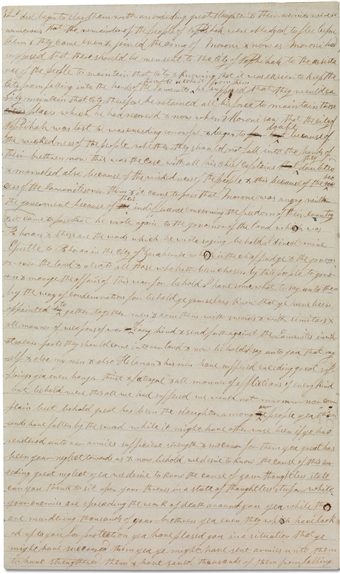 & did begin to slay them with an exceding great slaughter & their armies were so
numerous that the remainder of the people of Nephihah were obliged to flee before
them & they came even & joined the army of Moroni & now as Moroni had
supposed that there should be men sent to the City of Nephihah to the assista
nce of the people to maintain that City & knowing that it was easier to keep the
City from falling into the hands of the Lamanites than to retake it from them he supposed that they would ea
sily maintain that City therefore he retained all his force to maintain those
places which he had recovered & now when Moroni saw that the City
of Nephihah was lost he was exceding sorrowful & began to doubt because of
the wickedness of the people whether they should not fall into the hands of
their brethren now this was the case with all his chief Captains they doubted
& marveled also because of the wickedness of the people & this because of the suc
cess of the Lamanites over them & it came to pass that Moroni was angry with
the government because of their indifference concerning the freedom of their country
& it came to pass that he wrote again to the governor of the land which was
Pahoran & these are the words which he wrote saying behold I direct mine
Epistle to Pahoran in the City of Zarahemla which is the chief judge & the governor
over the land & also to all those who hath been chosen by this people to govern
& manage the affairs of this war for behold I have somewhat to say unto them
by the way of condemnation for behold ye yourselves know that ye have been
appointed to gether together men & arm them with swords & with cimiters &
all manner of weapons of war of every kind & send forth against the Lamanites in wh
atsoever parts they should come into our land & now behold I say unto you that my
self & also my men & also Helaman & his men have suffered exceding great suf
ferings yea even hunger thirst & fatigue & all manner of afflictions of every kind
but behold were this all we had suffered we would not murmer nor com
plain but behold great has been the slaughter among our people yea thou
sands have fallen by the sword while it might have otherwise been if ye had
rendered unto our armies sufficient strength & succor for them yea great has
been your neglect towards us & now behold we desire to know the cause of this ex
ceding great neglect yea we desire to know the cause of your thoughtless state
can you think to sit upon your thrones in a state of thoughtless stupor while
your enemies are spreading the work of death around you yea while they
are murdering thousands of your brethren yea even they who have look
ed up to you for protection yea have placed you in a situation that ye
might have succored them yea ye might have sent armies unto them
to have strengthened them & have saved thousands of them from falling